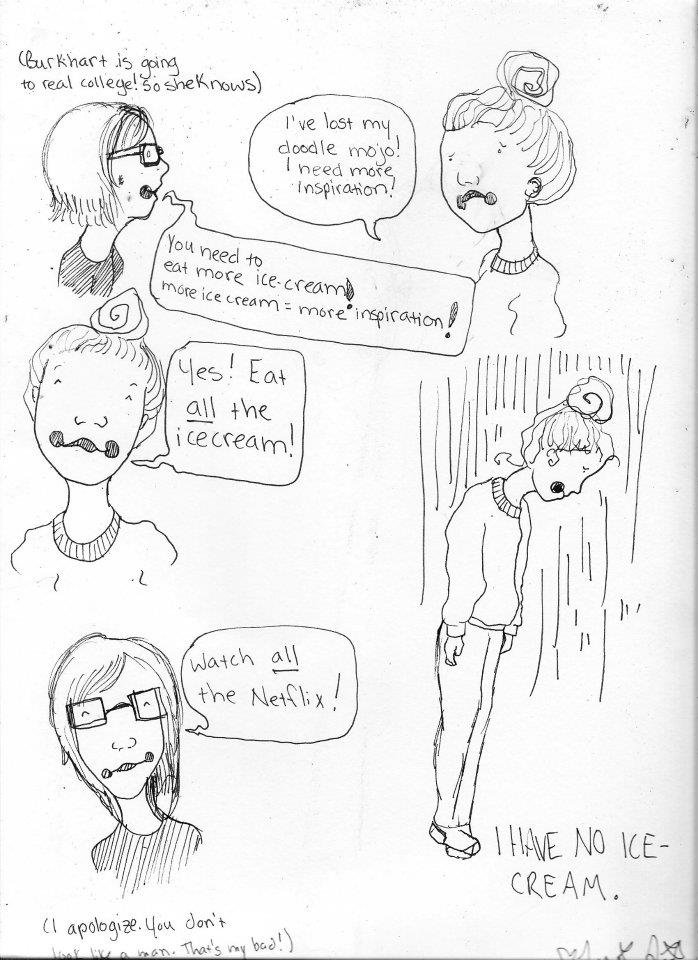 (Burkhart is going
to real college! so she knows)
I've lost my
doodle mojo!
I need more
inspiration!
You need to
eat more ice-cream!
more ice cream = more inspiration!
Yes! Eat
all the
icecream!
Watch all
the Netflix!
I HAVE NO ICE-
CREAM.
(I apologize. You don't
look like a man. That's my bad!)